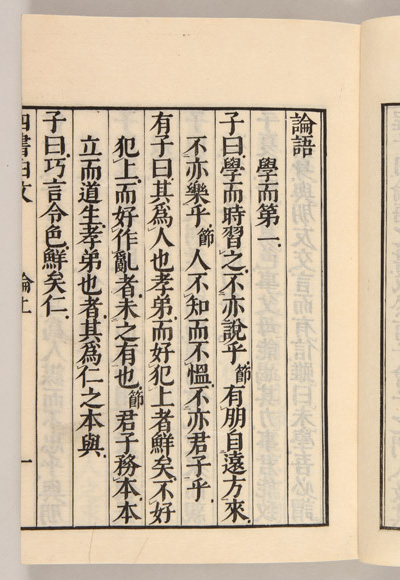 論語
學而第一
子曰學而時習之不亦說乎節有朋自遠方來
不亦樂乎節人不知而不慍不亦君子乎
有子曰其爲人也孝弟而好犯上者鮮矣不好
犯上而好作亂者未之有也節君子務本本
立而道生孝弟也者其爲仁之本與
子曰巧言令色鮮矣仁
四書白文 論上 一